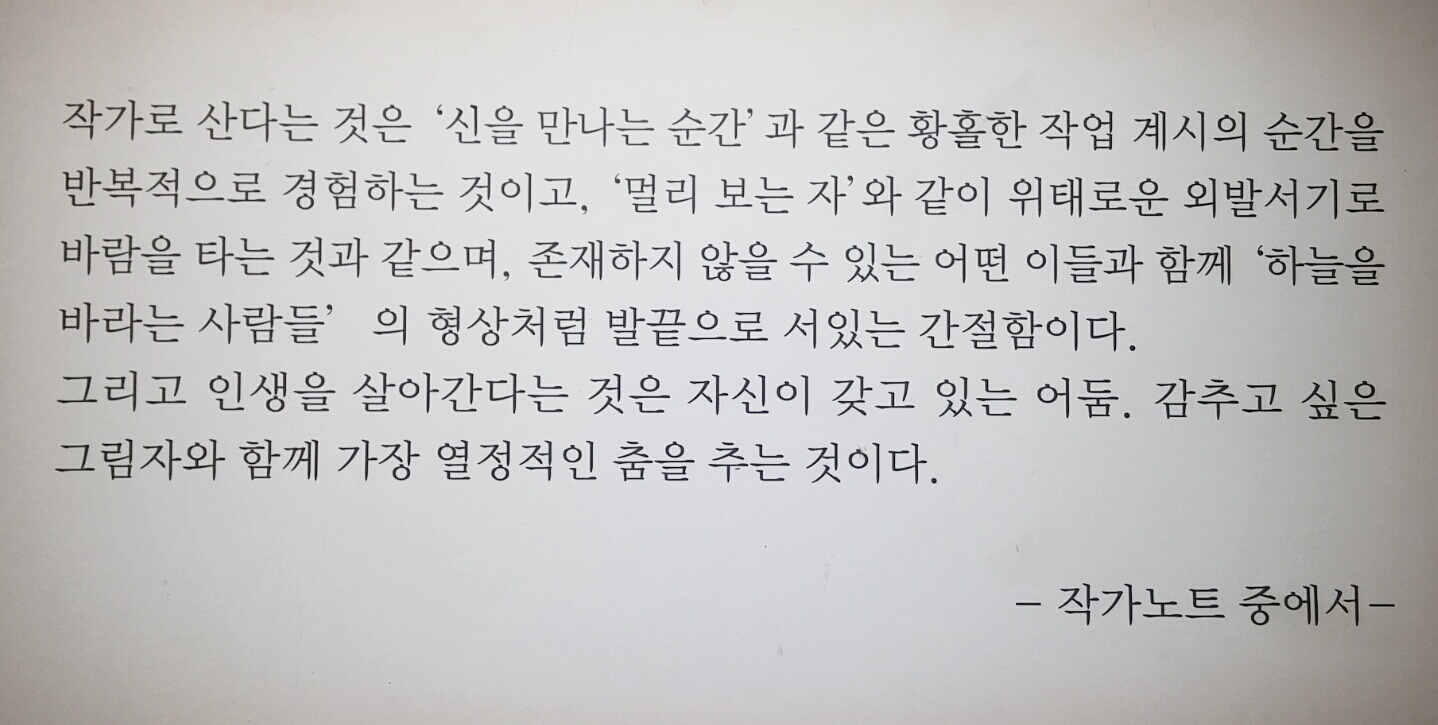 작가로 산다는 것은 ‘신을 만나는 순간’과 같은 황홀한 작업 계시의 순간을
반복적으로 경험하는 것이고, ‘멀리 보는 자’와 같이 위태로운 외발서기로
바람을 타는 것과 같으며, 존재하지 않을 수 있는 어떤 이들과 함께 ‘하늘을
바라는 사람들’ 의 형상처럼 발끝으로 서있는 간절함이다.
그리고 인생을 살아간다는 것은 자신이 갖고 있는 어둠. 감추고 싶은
그림자와 함께 가장 열정적인 춤을 추는 것이다.
- 작가노트 중에서-